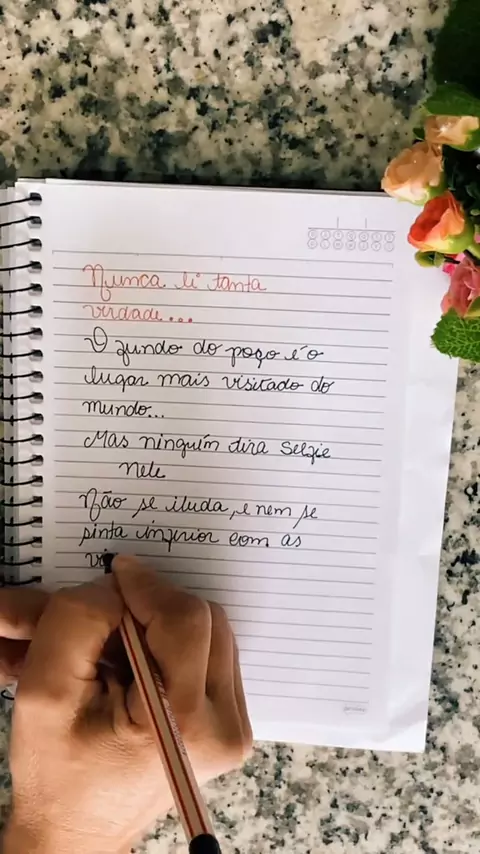 Nunca li tanta
verdade...
O fundo do poço é o
lugar mais visitado do
mundo...
Mas ninguém tira selfie
nele
Não se iluda, e nem se
sinta inferior com as
vi